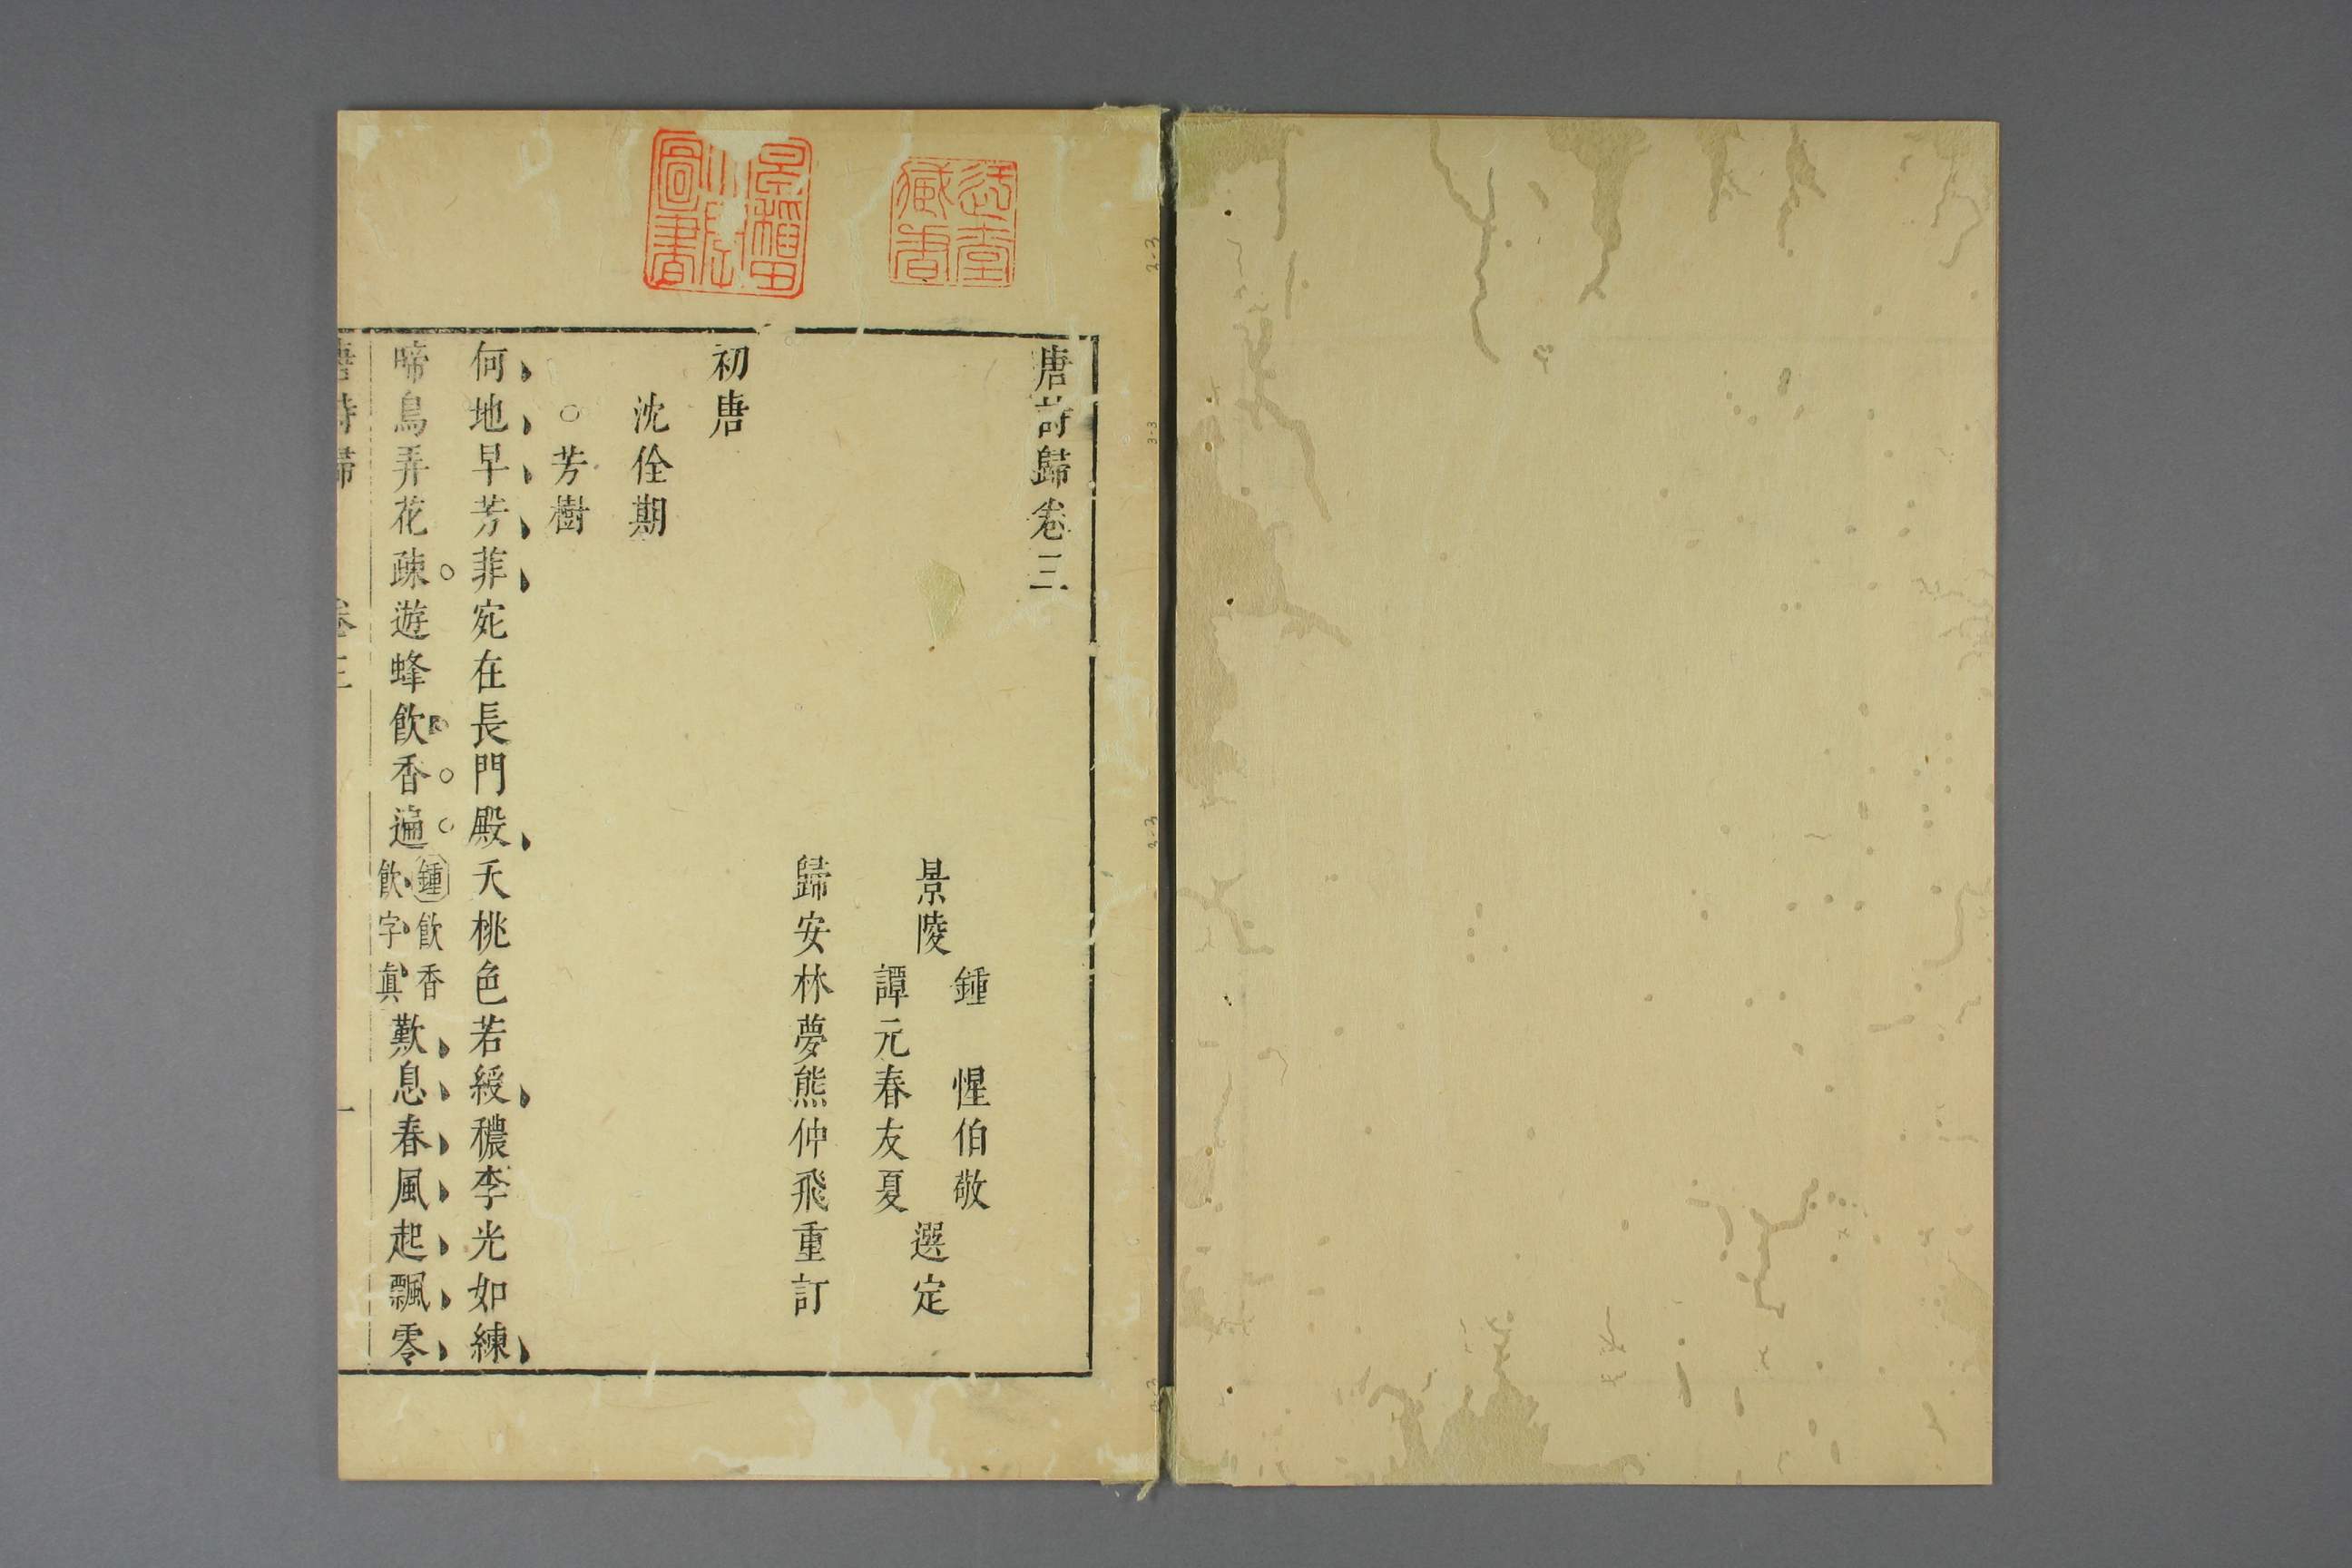 唐詩歸卷三
鍾 惺伯敬
景陵 選定
譚元春友夏
歸安林夢熊仲飛重訂
初唐
沈佺期
○芳樹
何地早芳菲宛在長門殿夭桃色若綬穠李光如練
啼鳥弄花疎遊蜂飲香遍
鍾飲香
飲字真
歎息春風起飄零
唐詩歸 卷三 一